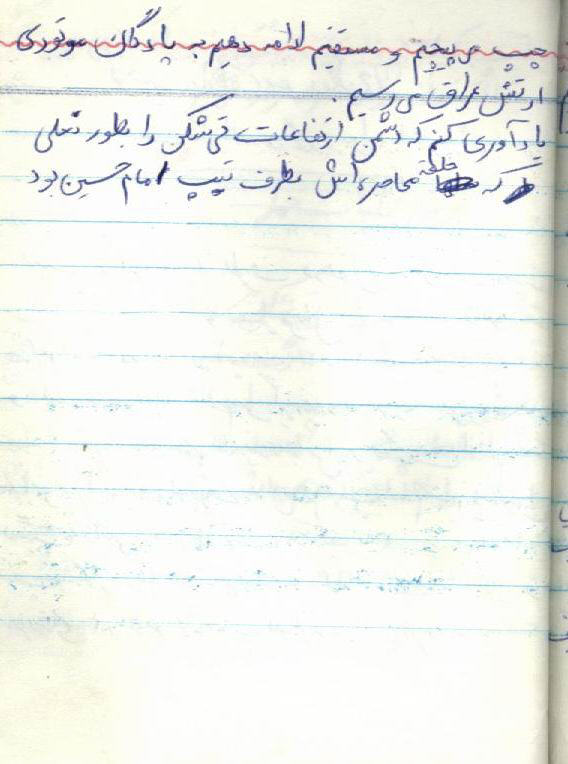 چپ می پیچم و مستقیم ادامه دهیم به پادگان موتوری
ارتش عراق می رسیم.
یادآوری کنم که دشمن ارتفاعات قمیشکن را بطور نعلی
که حلقه محاصره اش بطرف تیپ امام حسین بود